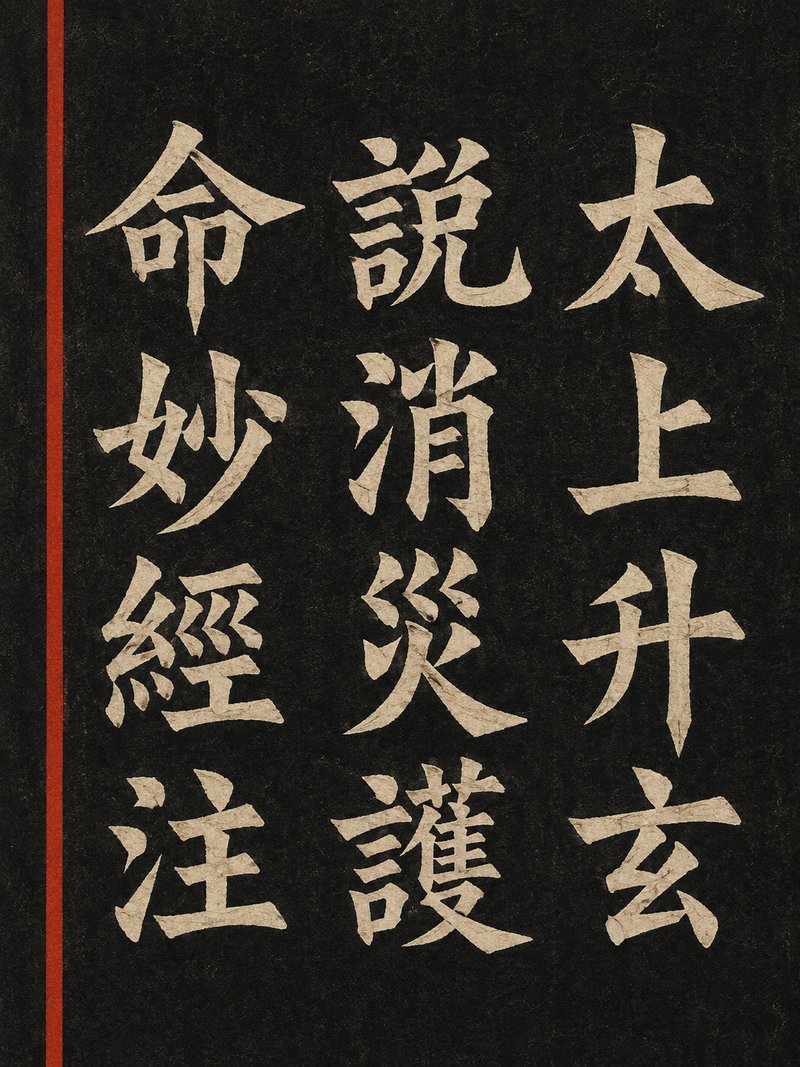 太上升玄
說消災護
命妙經注